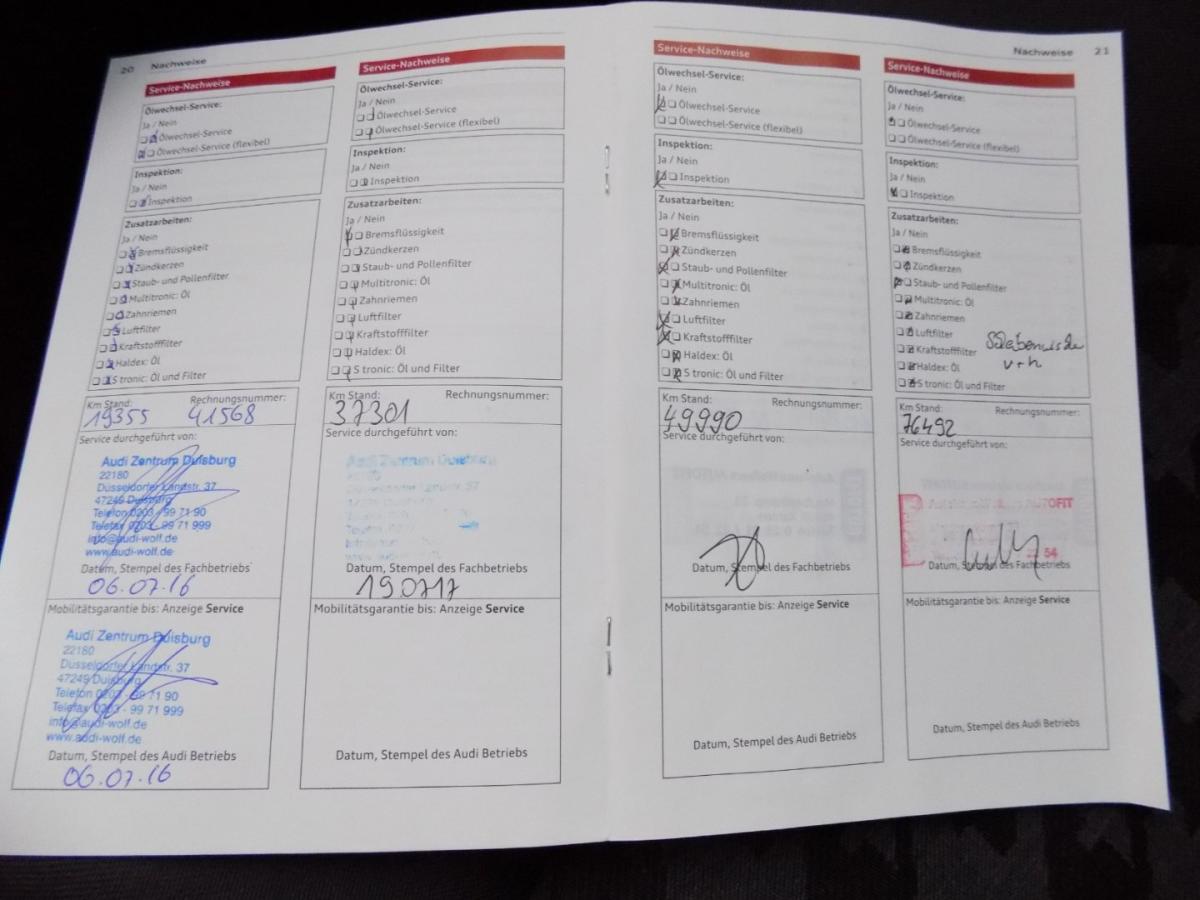 20 Nachweise
Service-Nachweise
Ölwechsel-Service:
Ja / Nein
Ölwechsel-Service
Ölwechsel-Service (flexibel)
Inspektion:
Ja / Nein
Inspektion
Zusatzarbeiten:
Ja / Nein
Bremsflüssigkeit
Zündkerzen
Staub- und Pollenfilter
Multitronic: Öl
Zahnriemen
Luftfilter
Kraftstofffilter
Haldex: Öl
S tronic: Öl und Filter
Km Stand: Rechnungsnummer:
19355 41568
Service durchgeführt von:
Audi Zentrum Duisburg
22180
Düsseldorfer Landstr. 37
47249 Duisburg
Telefon 0203 - 99 71 90
Telefax 0203 - 99 71 999
info@audi-wolf.de
www.audi-wolf.de
Datum, Stempel des Fachbetriebs
06.07.16
Mobilitätsgarantie bis: Anzeige Service
Audi Zentrum Duisburg
22180
Düsseldorfer Landstr. 37
47249 Duisburg
Telefon 0203 - 99 71 90
Telefax 0203 - 99 71 999
info@audi-wolf.de
www.audi-wolf.de
Datum, Stempel des Audi Betriebs
06.07.16
Service-Nachweise
Ölwechsel-Service:
Ja / Nein
Ölwechsel-Service
Ölwechsel-Service (flexibel)
Inspektion:
Ja / Nein
Inspektion
Zusatzarbeiten:
Ja / Nein
Bremsflüssigkeit
Zündkerzen
Staub- und Pollenfilter
Multitronic: Öl
Zahnriemen
Luftfilter
Kraftstofffilter
Haldex: Öl
S tronic: Öl und Filter
Km Stand: Rechnungsnummer:
37301
Service durchgeführt von:
Audi Zentrum Duisburg
Datum, Stempel des Fachbetriebs
190717
Mobilitätsgarantie bis: Anzeige Service
Datum, Stempel des Audi Betriebs
Nachweise 21
Service-Nachweise
Ölwechsel-Service:
Ja / Nein
Ölwechsel-Service
Ölwechsel-Service (flexibel)
Inspektion:
Ja / Nein
Inspektion
Zusatzarbeiten:
Ja / Nein
Bremsflüssigkeit
Zündkerzen
Staub- und Pollenfilter
Multitronic: Öl
Zahnriemen
Luftfilter
Kraftstofffilter
Haldex: Öl
S tronic: Öl und Filter
Km Stand: Rechnungsnummer:
49990
Service durchgeführt von:
Datum, Stempel des Fachbetriebs
Mobilitätsgarantie bis: Anzeige Service
Datum, Stempel des Audi Betriebs
Service-Nachweise
Ölwechsel-Service:
Ja / Nein
Ölwechsel-Service
Ölwechsel-Service (flexibel)
Inspektion:
Ja / Nein
Inspektion
Zusatzarbeiten:
Ja / Nein
Bremsflüssigkeit
Zündkerzen
Staub- und Pollenfilter
Multitronic: Öl
Zahnriemen
Luftfilter
Kraftstofffilter
Haldex: Öl
S tronic: Öl und Filter
v+h
Km Stand: Rechnungsnummer:
76492
Service durchgeführt von:
AUTOFIT
54
Datum, Stempel des Fachbetriebs
Mobilitätsgarantie bis: Anzeige Service
Datum, Stempel des Audi Betriebs